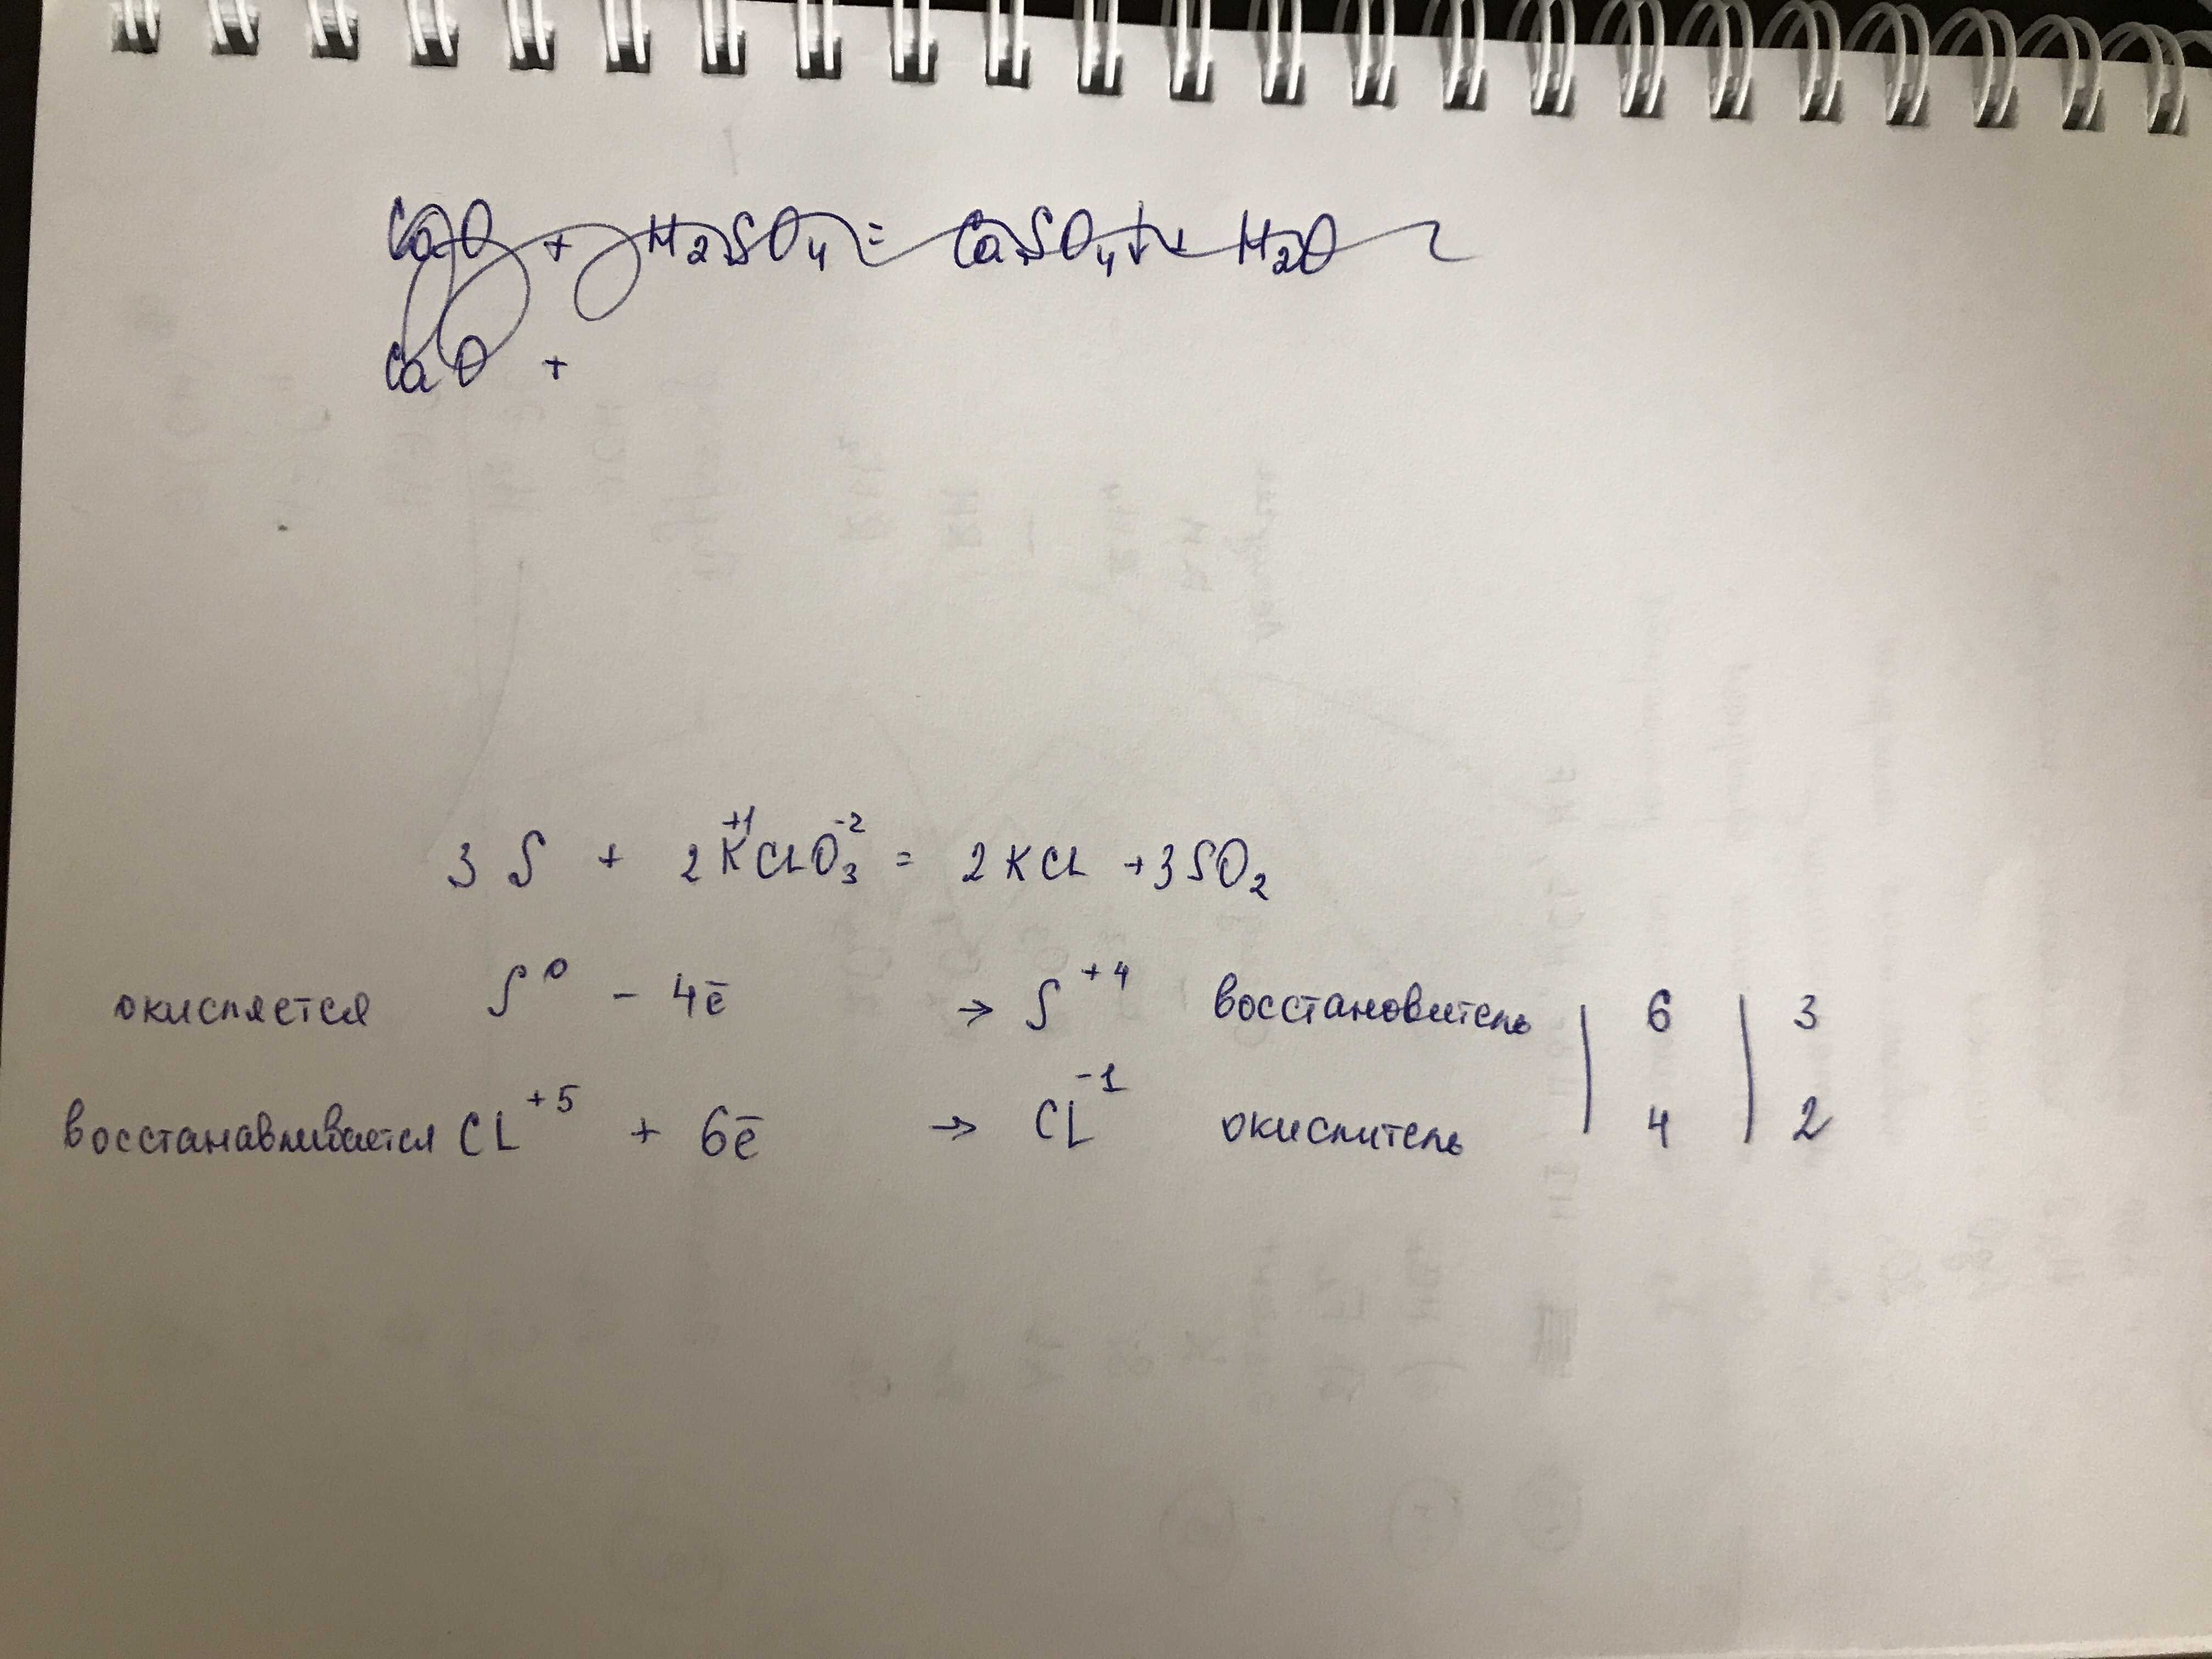 CaO + H₂SO₄ = CaSO₄↓ + H₂O
CaO +
3 S + 2 K⁺¹ClO₃⁻² = 2 KCl + 3 SO₂
окисляется S⁰ - 4ē → S⁺⁴ восстановитель | 6 | 3
восстанавливается Cl⁺⁵ + 6ē → Cl⁻¹ окислитель | 4 | 2